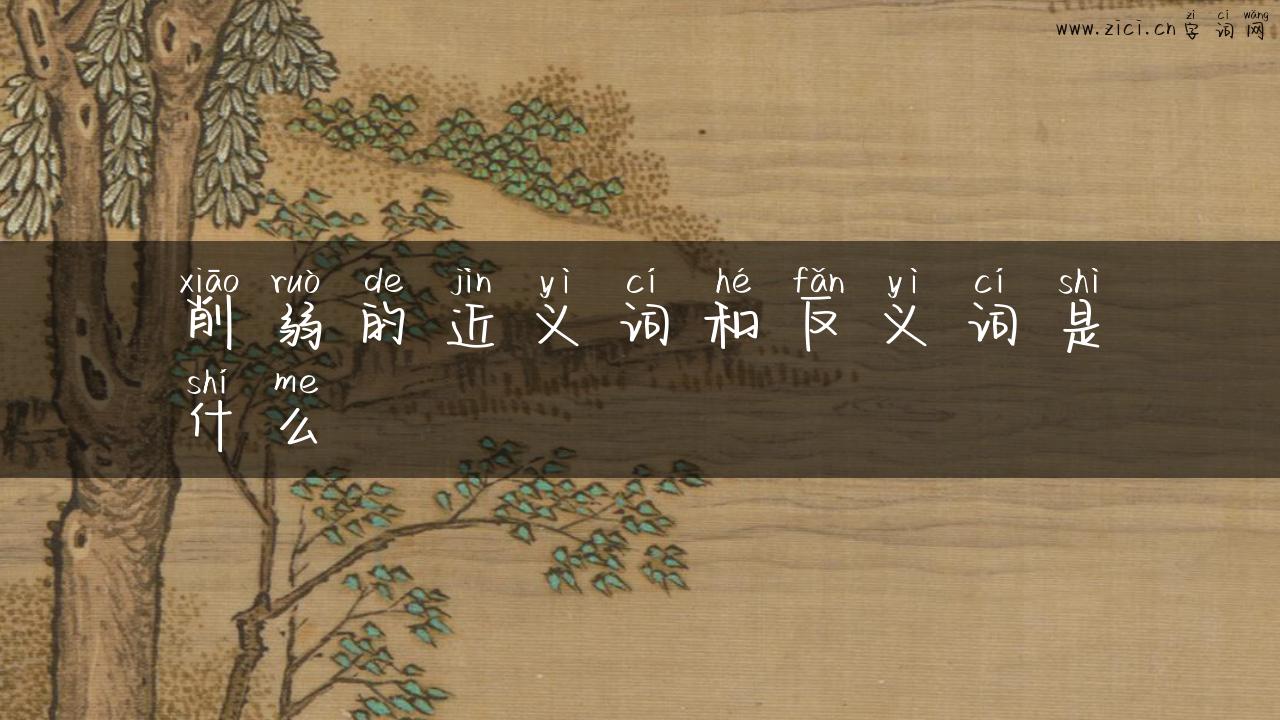 zì cí wǎng
www.zici.cn 字词网
xiāo ruò de jìn yì cí hé fǎn yì cí shì
削弱的近义词和反义词是
shí me
什么